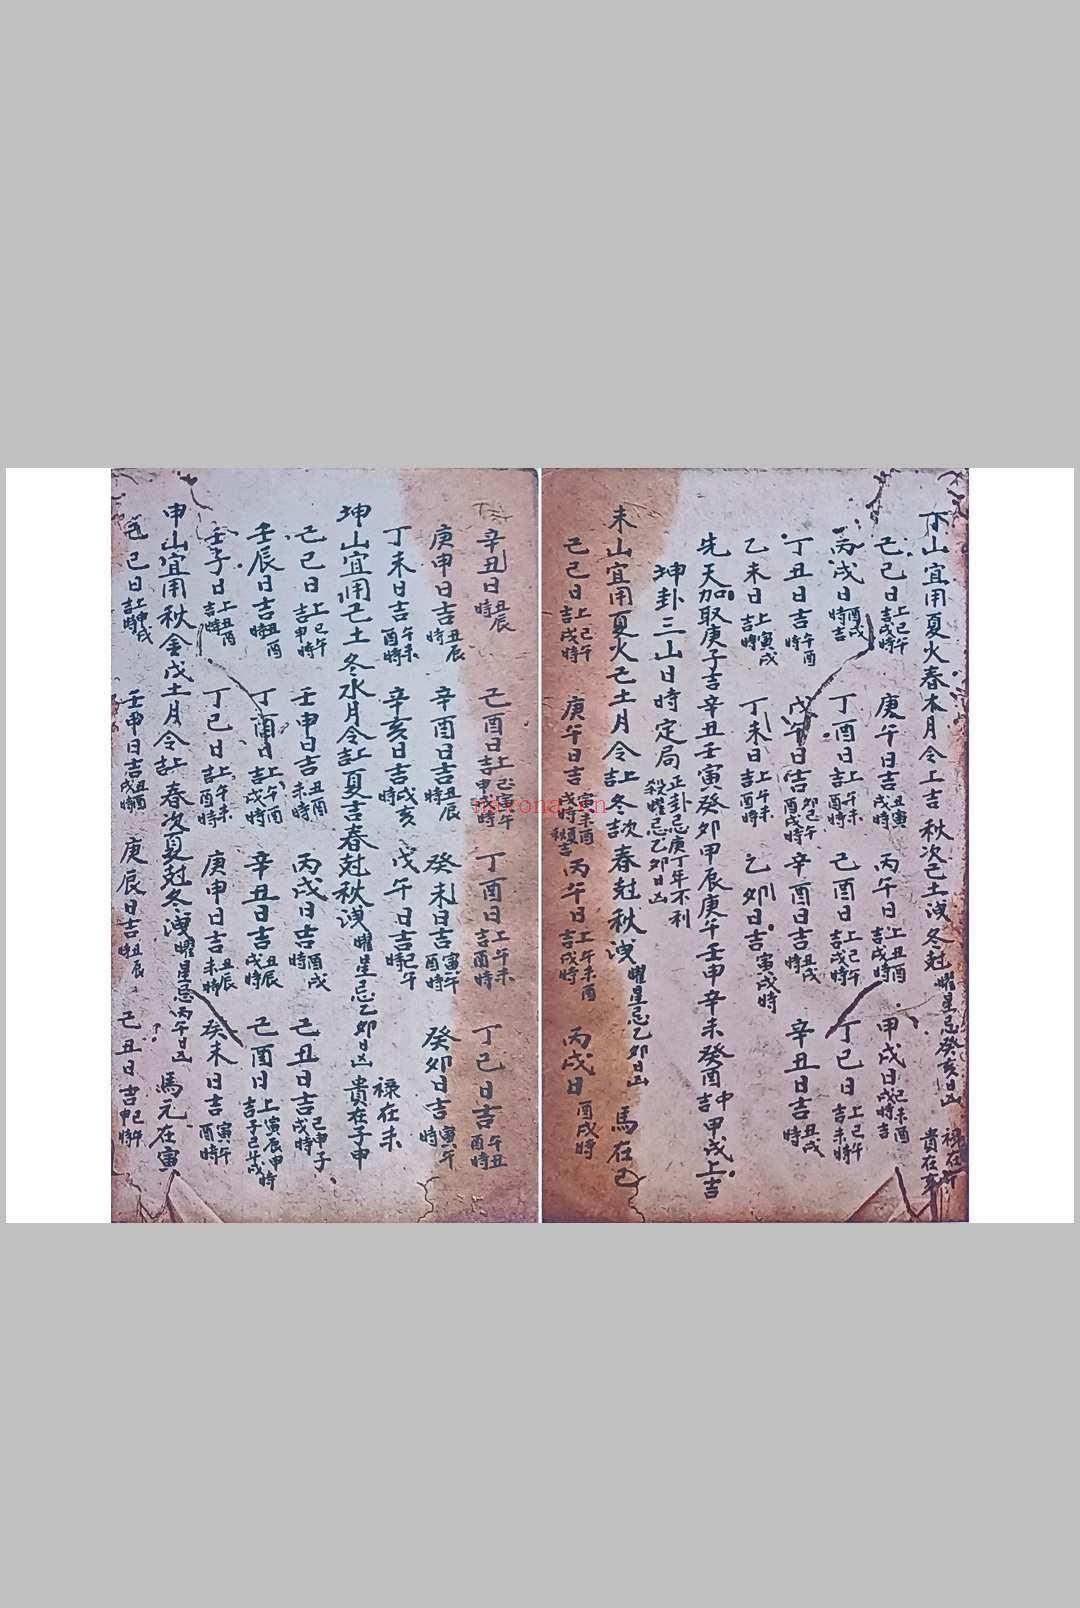 丁山宜用夏火春木月令上吉秋次己土洩冬尅曜星忌癸亥日凶 祿在午 貴在亥
己巳日上吉巳午戌時 庚午日吉丑寅戌時 丙午日上吉丑酉戌時 甲戌日巳未酉戌時吉
丙戌日酉戌時吉 丁酉日上吉午未酉時 己酉日上吉巳午戌時 丁巳日上吉巳午未時
丁丑日吉午酉時 戊午日吉卯巳午酉戌時 辛酉日吉丑戌時 辛丑日吉丑戌時
乙未日上吉寅戌時 丁未日上吉午未酉時 乙卯日吉寅戌時
先天加取庚子吉辛丑壬寅癸卯甲辰庚午壬申辛未癸酉中吉甲戌上吉
坤卦三山日時定局 正卦忌庚丁年不利 殺曜忌乙卯日凶
未山宜用夏火己土月令上吉冬次吉春尅秋洩曜星忌乙卯日凶 馬在巳
己巳日上吉巳午戌時 庚午日吉寅未酉戌時夏秋吉 丙午日上吉午未酉戌時 丙戌日酉戌時
辛丑日丑辰時 己酉日上吉寅午申時 丁酉日上吉午未酉時 丁巳日吉午丑酉時
庚申日吉丑辰時 辛酉日吉丑辰時 癸未日吉寅午酉時 癸卯日吉寅午時
丁未日吉午未酉時 辛亥日吉戌亥時 戊午日吉巳午時 祿在未
坤山宜用己土冬水月令上吉夏吉春尅秋洩曜星忌乙卯日凶 貴在子申
己巳日上吉巳午申時 壬申日吉丑酉未時 丙戌日吉酉戌時 己丑日吉巳申子戌時
壬辰日吉丑酉時 丁酉日上吉午酉戌時 辛丑日吉丑辰戌時 己酉日上吉寅辰申子巳午戌時
壬子日上吉丑酉時 丁巳日上吉午未酉時 庚申日吉丑辰未時 癸未日吉寅午酉時
申山宜用秋金戊土月令上吉春次夏尅冬洩曜星忌丙午日凶 馬元在寅
己日上吉申戌時 壬申日吉丑酉戌時 庚辰日吉丑辰時 己丑日吉巳申時